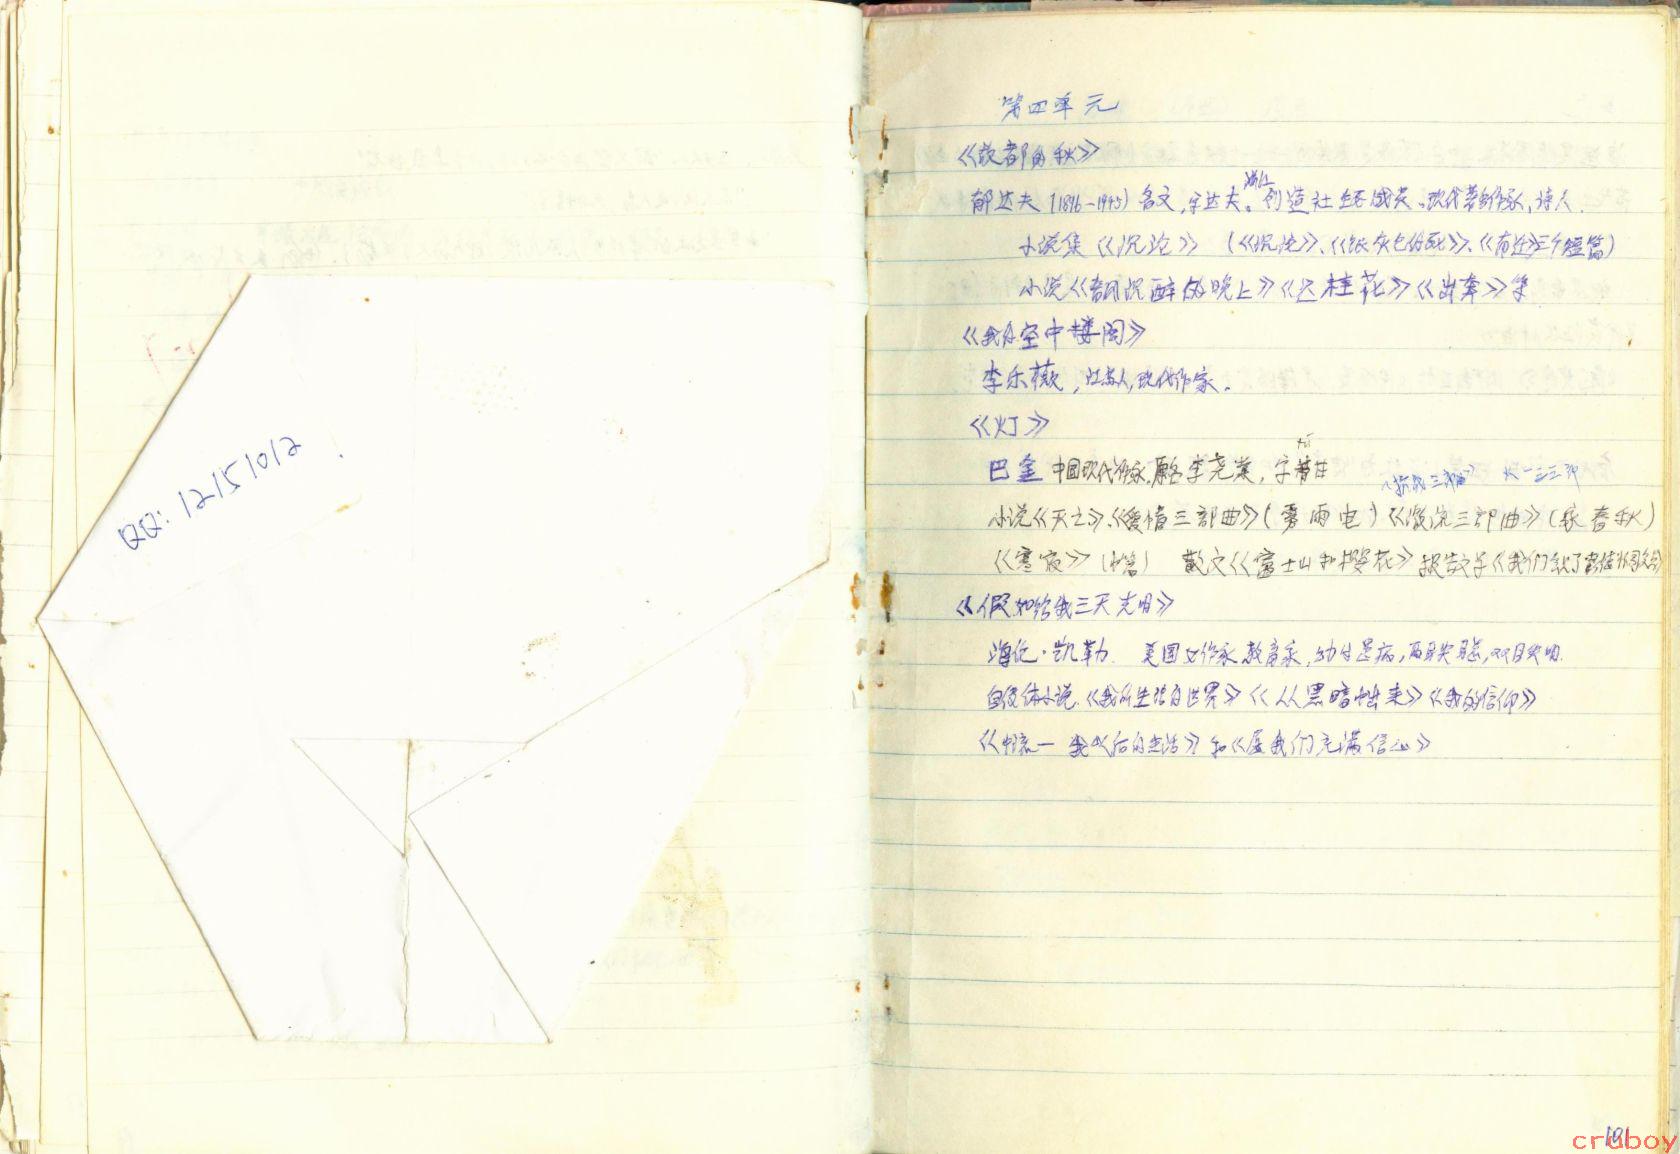 QQ: 12151012
第四单元
《故都的秋》
郁达夫 (1896-1945) 名文,字达夫。浙江 创造社 现代著名作家,诗人.
小说集《沉沦》 (《沉沦》、《银灰色的死》、《南迁》三个短篇)
小说《春风沉醉的晚上》《迟桂花》《出奔》等
《我的空中楼阁》
李乐薇, 江苏人,现代作家.
《灯》
巴金 中国现代作家.原名李尧棠, 字芾甘
《抗战三部曲》 火 一二三部
小说《灭亡》、《爱情三部曲》(雾雨电)《激流三部曲》(家春秋)
《寒夜》(中篇) 散文《富士山和樱花》报告文学《我们会见了彭德怀司令员》
《假如给我三天光明》
海伦·凯勒. 美国女作家教育家,幼时患病,两耳失聪,双目失明.
自传体小说.《我所生活的世界》《从黑暗中出来》《我的信仰》
《中流—我以后的生活》和《愿我们充满信心》
181
craboy